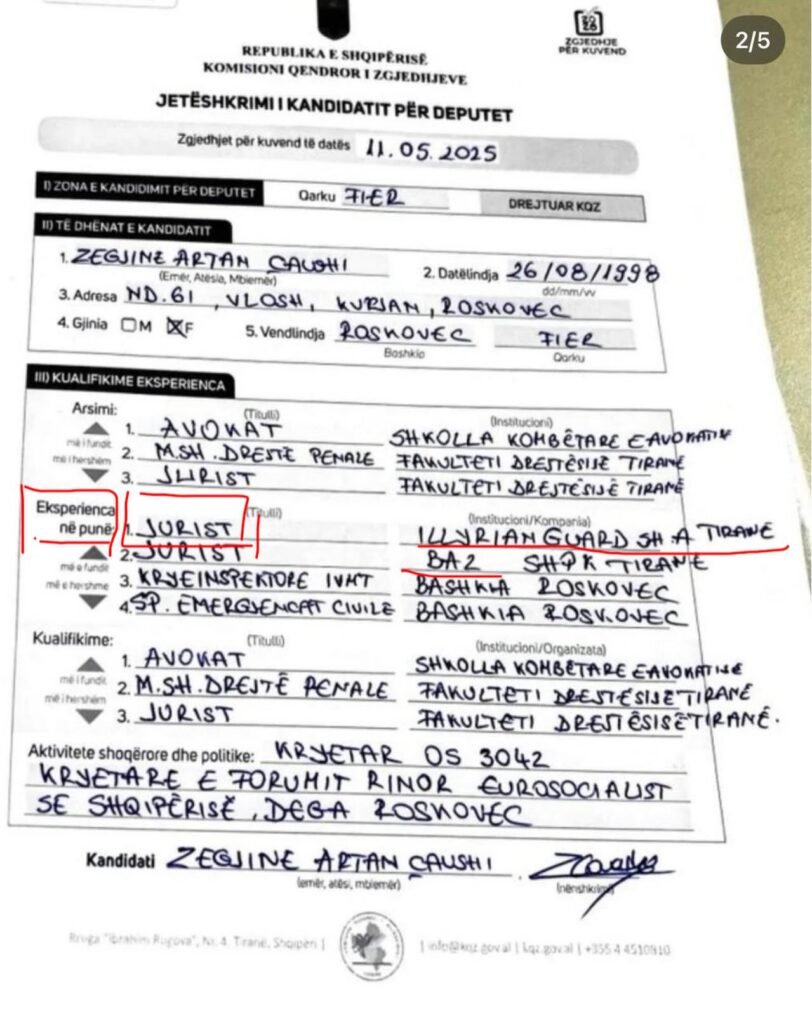 2/5
ZGJEDHJE
PËR KUVEND
REPUBLIKA E SHQIPËRISË
KOMISIONI QENDROR I ZGJEDHJEVE
JETËSHKRIMI I KANDIDATIT PËR DEPUTET
Zgjedhjet për kuvend të datës 11.05.2025
I) ZONA E KANDIDIMIT PËR DEPUTET Qarku FIER DREJTUAR KQZ
II) TË DHËNAT E KANDIDATIT
1. ZEGJINE ARTAN ÇAUSHI 2. Datëlindja 26/08/1998
(Emër, Atësia, Mbiemër) dd/mm/vv
3. Adresa ND.61, VLOSH, KURJAN, ROSKOVEC
4. Gjinia M F 5. Vendlindja ROSKOVEC FIER
Bashkia Qarku
III) KUALIFIKIME EKSPERIENCA
Arsimi: (Titulli) (Institucioni)
1. AVOKAT SHKOLLA KOMBËTARE E AVOKATISË
më i fundit
2. M.SH. DREJTË PENALE FAKULTETI DREJTËSISË TIRANË
më i hershëm
3. JURIST FAKULTETI DREJTËSISË TIRANË
Eksperienca në punë: (Titulli) (Institucioni/Kompania)
1. JURIST ILLYRIAN GUARD SH.A TIRANË
2. JURIST BA2 SHPK TIRANË
më e fundit
3. KRYEINSPEKTORE IVMT BASHKIA ROSKOVEC
më e hershme
4. SP. EMERGJENCAT CIVILE BASHKIA ROSKOVEC
Kualifikime: (Titulli) (Institucioni/Organizata)
1. AVOKAT SHKOLLA KOMBËTARE E AVOKATISË
më i fundit
2. M.SH. DREJTË PENALE FAKULTETI DREJTËSISË TIRANË
më i hershëm
3. JURIST FAKULTETI DREJTËSISË TIRANË.
Aktivitete shoqërore dhe politike: KRYETAR OS 3042
KRYETARE E FORUMIT RINOR EUROSOCIALIST
SE SHQIPËRISË, DEGA ROSKOVEC
Kandidati ZEGJINE ARTAN ÇAUSHI
(emër, atësi, mbiemër) (nënshkrimi)
Rruga "Ibrahim Rugova", Nr. 4. Tiranë, Shqipëri | | info@kqz.gov.al | kqz.gov.al | +355 4 4510810